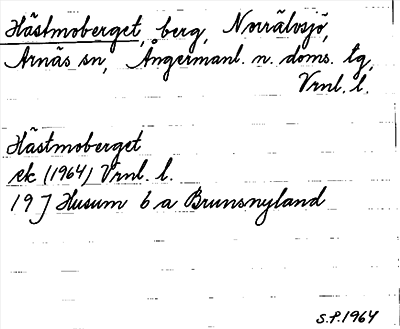 Hästmoberget, berg, Norrälvsjö,
Arnäs sn, Ångermanl. n. doms. tg,
Vrnl. l.
Hästmoberget
ek (1964) Vrnl. l.
19 J Husum 6 a Brunsnyland
S.P. 1964